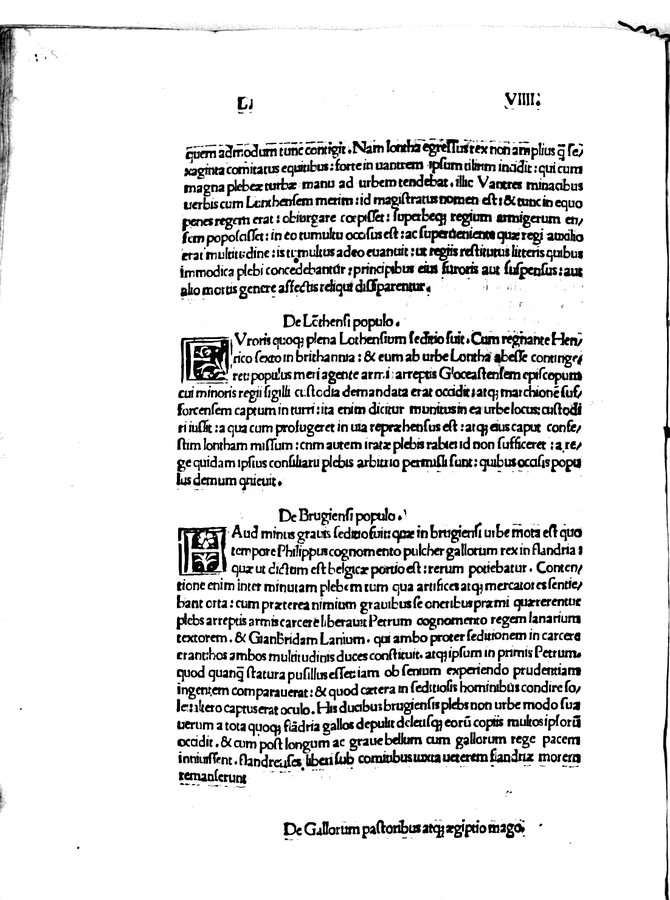 L. VIIII.
quem admodum tunc contigit. Nam lontha egressus rex non amplius q̃ se/
xaginta comitatus equitibus: forte in uantrem ipsum tilirim incidit: qui cum
magna plebeæ turbæ manu ad urbem tendebat. illic Vantres minacibus
uerbis cum Lonthensem merim: id magistratus nomen est: & tunc in equo
penes regem erat: obiurgare corpisset: superbeq; regium armigerum en/
sem poposcisset: in eo tumultu occisus est: ac superueniente quæ regi auxilio
erat multitudine: is tumultus adeo euanuit: ut regiis restitutis litteris quibus
immodica plebi concedebantur: principibus eius furoris aut suspensus: aut
alio mortis genere affectis reliqui dissparentur.
De Lõthensi populo.
FVroris quoq; plena Lothensium seditio fuit. Cum regnante Hen/
rico sexto in brithannia: & eum ab urbe Lontha abesse continge/
ret: populus meri agente armi: arreptis Gloceastensem episcopum
cui minoris regii sigilli custodia demandata erat occidit: atq; marchionem suf/
forcensem captum in turri: ita enim dicitur munitus in ea urbe locus: custodi
ri iussit: a qua cum profugeret in uia repræhensus est: atq; eius caput confe/
stim lontham missum: cnm autem iratæ plebis rabiei id non sufficeret: a re/
ge quidam ipsius consiliarii plebis arbitrio permissi sunt: quibus occisis popu
lus demum quieuit.
De Brugiensi populo.
HAud minus grauis seditio fuit: quæ in brugiensi urbe mota est quo
tempore Philippus cognomento pulcher gallorum rex in flandria:
quæ ut dictum est belgicæ portio est: rerum potiebatur. Conten/
tione enim inter minutam plebem tum qua artifices atq; mercatores sentie/
bant orta: cum præterea nimium grauibus se oneribus præmi quærerentur
plebs arreptis armis carcere liberauit Petrum cognomento regem lanarium
textorem. & GianBridam Lanium. qui ambo proter seditionem in carcere
erant: hos ambos multitudinis duces constituit. atq; ipsum in primis Petrum.
quod quanq̃ statura pusillus esset: iam ob senium experiendo prudentiam
ingentem comparauerat: & quod cætera in seditiosis hominibus condire so/
let: altero captus erat oculo. His ducibus brugiensis plebs non urbe modo sua
uerum a tota quoq; flãdria gallos depulit deleusq; eorũ copiis multos ipsorũ
occidit. & cum post longum ac graue bellum cum gallorum rege pacem
inniuissent. flandreuses liberi sub comitibus iuxta ueterem flandriæ morem
remanserunt
De Gallorum pastoribus atq; ægiptio mago.